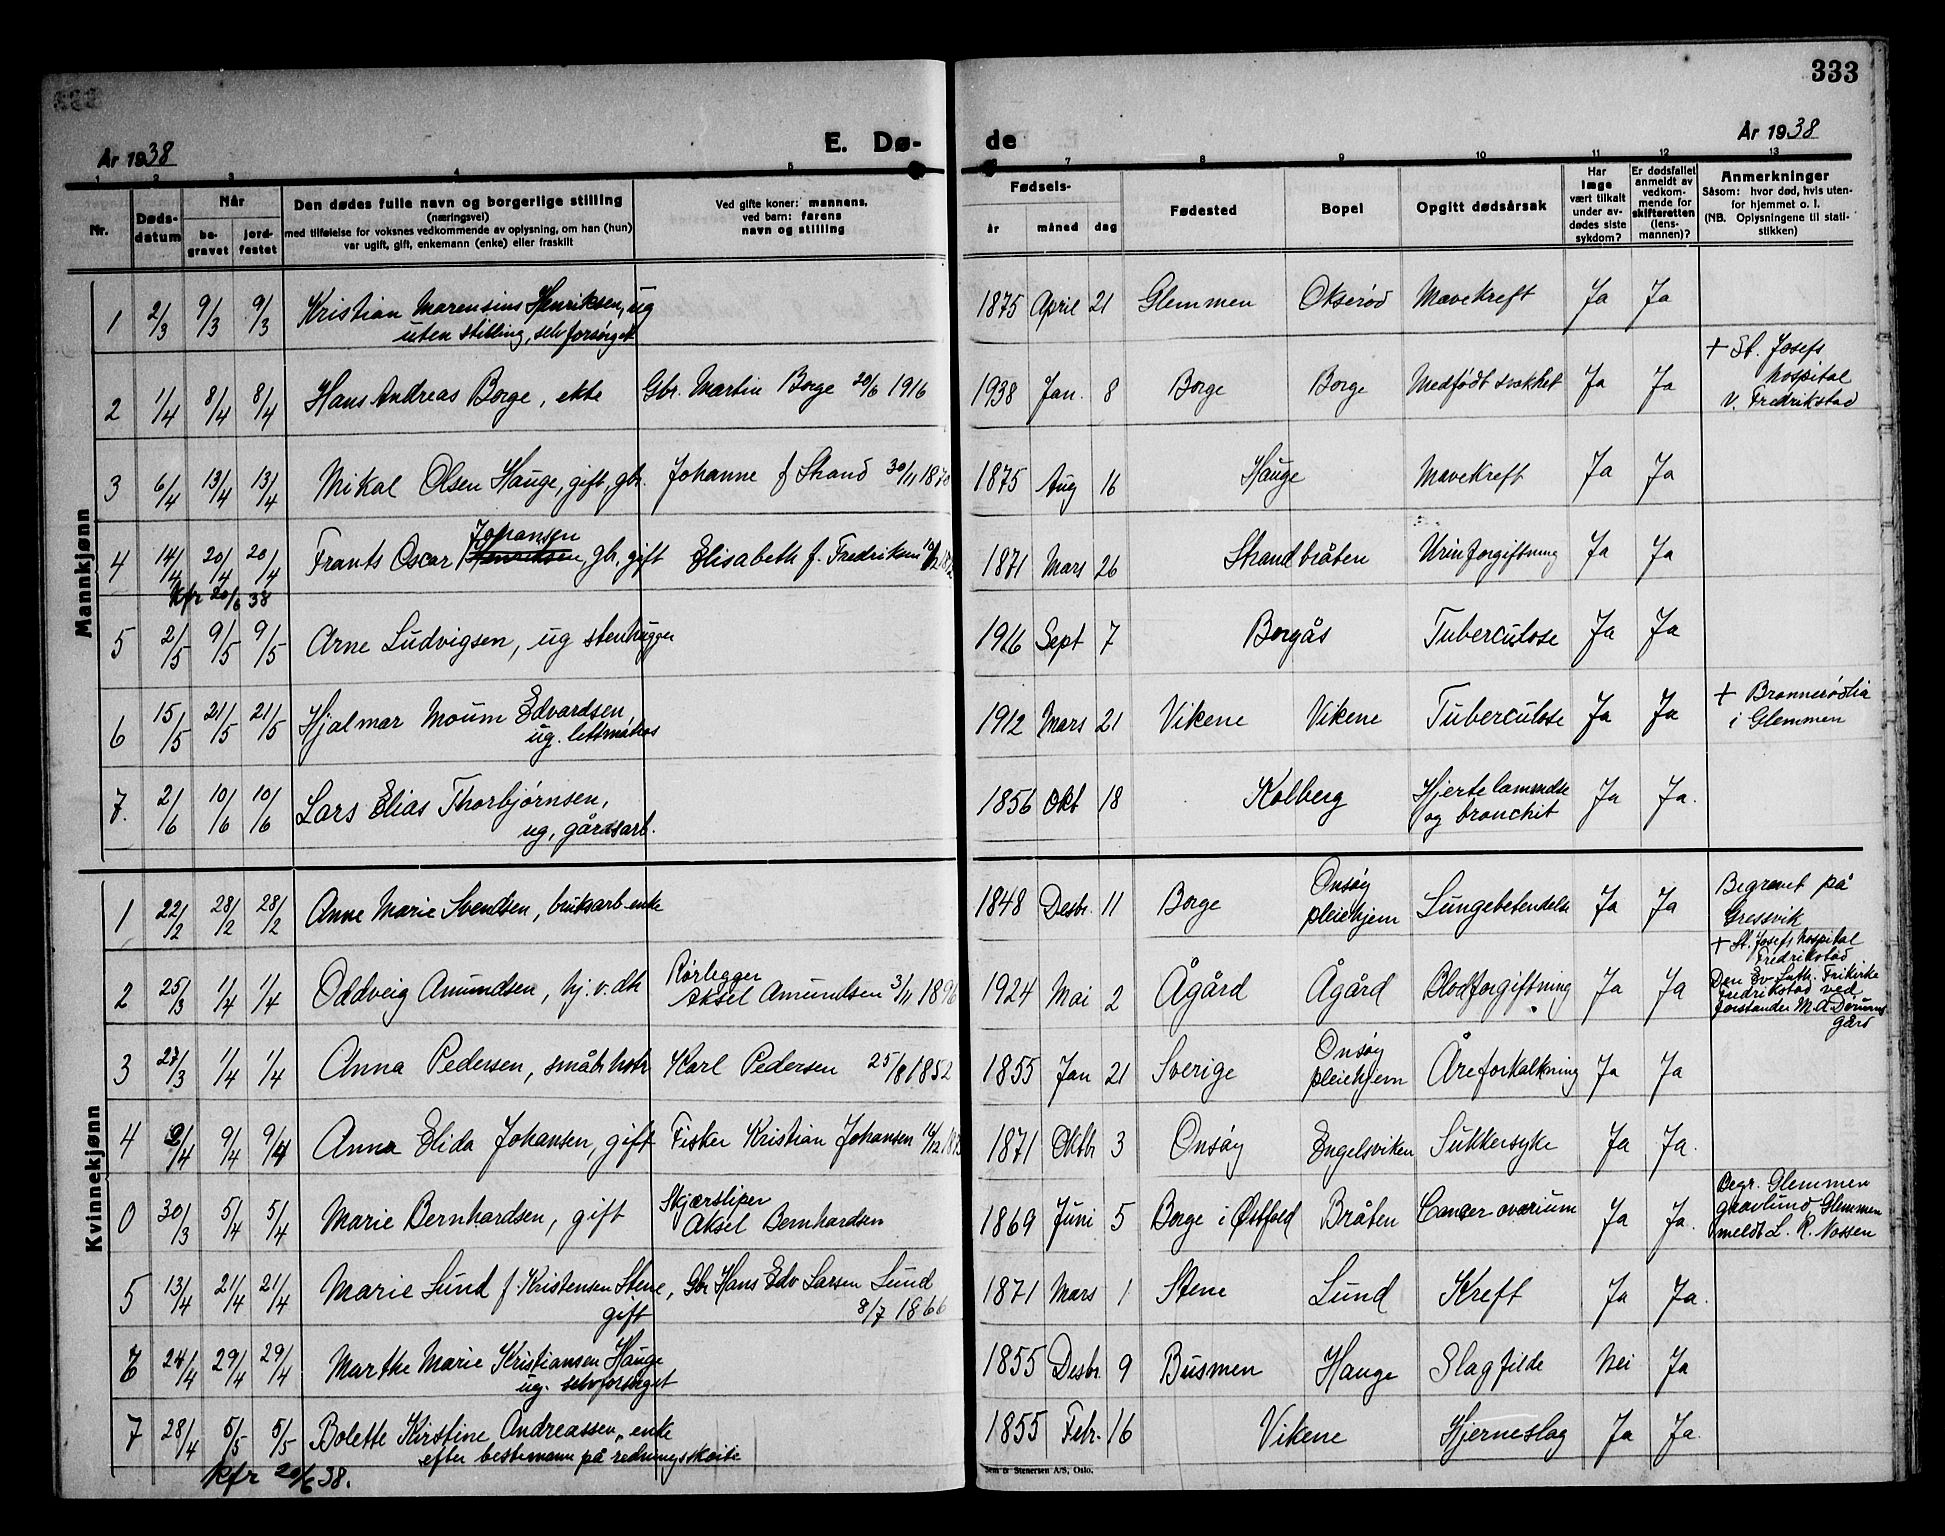 333
År 1938
E. Dø-
de
År 1938
1 2 3 4 5 7 8 9 10 11 12 13
Nr.
Døds-
datum
Når
be-
gravet
jord-
festet
Den dødes fulle navn og borgerlige stilling
(næringsvei)
med tilføielse for voksnes vedkommende av oplysning, om han (hun)
var ugift, gift, enkemann (enke) eller fraskilt
Ved gifte koner: mannens,
ved barn: farens
navn og stilling
Fødsels-
år måned dag
Fødested
Bopel
Opgitt dødsårsak
Har
læge
vært tilkalt
under av-
dødes siste
sykdom?
Er dødsfallet
anmeldt av
vedkom-
mende for
skifteretten
(lens-
mannen)?
Anmerkninger
Såsom: hvor død, hvis uten-
for hjemmet o. l.
(NB. Oplysningene til stati-
stikken)
Mannkjønn
1 2/3 9/3 9/3 Kristian Marensius Henriksen, ug 1875 April 21 Glemmen Okserød Mavekreft Ja Ja
uten stilling, selvforsørget
2 1/4 8/4 8/4 Hans Andreas Borge, ekte Gbr. Martin Borge 20/6 1916 1938 Jan. 8 Borge Borge Medfødt svakhet Ja Ja + St. Josefs
hospital
v. Fredrikstad
3 6/4 13/4 13/4 Mikal Olsen Hauge, gift, gbr. Johanne f Strand 30/11 1870 1875 Aug 16 Hauge Mavekreft Ja Ja
Johansen
4 14/4 20/4 20/4 Frants Oscar Henriksen, gbr, gift Elisabeth f. Fredriksen 1871 Mars 26 Strandbråten Urinforgiftning Ja Ja
Kfr 20/6 38
5 2/5 9/5 9/5 Arne Ludvigsen, ug stenhugger 1916 Sept 7 Borgås Tuberculose Ja Ja
6 15/5 21/5 21/5 Hjalmar Moum Edvardsen, 1912 Mars 21 Vikene Vikene Tuberculose Ja Ja + Brønnerødlia
ug. lettmatros i Glemmen
7. 2/6 10/6 10/6 Lars Elias Thorbjørnsen, 1856 Okt 18 Kolberg Hjertelammelse Ja Ja.
ug, gårdsarb. og bronchit
Kvinnekjønn
1 22/2 28/2 28/2 Anne Marie Svendsen, bruksarb enke 1848 Desbr. 11 Borge Onsøy
pleiehjem Lungebetendelse Ja Ja Begravet på
Gressvik
2 25/3 1/4 1/4 Oddveig Amundsen, hj. v. dtr Rørlegger
Aksel Amundsen 3/11 1896 1924 Mai 2 Ågård Ågård Blodforgiftning Ja Ja + St. Josefs hospital
Fredrikstad
Den Ev Luth. Frikirke
Fredrikstad ved
forstander M. A
gård
3 27/3 1/4 1/4 Anna Pedersen, småbr hustr Karl Pedersen 25/8 1852 1855 Jan 21 Sverige Onsøy
pleiehjem Åreforkalkning Ja Ja
4 2/4 9/4 9/4 Anna Elida Johansen, gift Fisker Kristian Johansen 1871 Oktbr 3 Onsøy Engelsviken Sukkersyke Ja Ja.
0 30/3 5/4 5/4 Marie Bernhardsen, gift Skjærsliper
Aksel Bernhardsen 1869 Juni 5 Borge i Østfold Bråten Cancer ovarium Ja Ja. Begr. Glemmen
gravlund, Glemmen
meldt L. R. Nossen
5 13/4 21/4 21/4 Marie Lund f. Kristensen Stene, Gbr Hans Edv Larsen Lund 1871 Mars 1 Stene Lund Kreft Ja Ja.
gift 8/7 1866
6 24/4 29/4 29/4 Marthe Marie Kristiansen Hauge 1855 Desbr. 9 Busmen Hauge Slagfilde Nei Ja
ug. selvforsørget
7 28/4 5/5 5/5 Bolette Kirstine Andreassen, enke 1855 Febr. 16 Vikene Hjerneslag Ja Ja.
efter bestemann på redningsskøite
Kfr 20/6 38.
Sem & Stenersen A/S, Oslo.